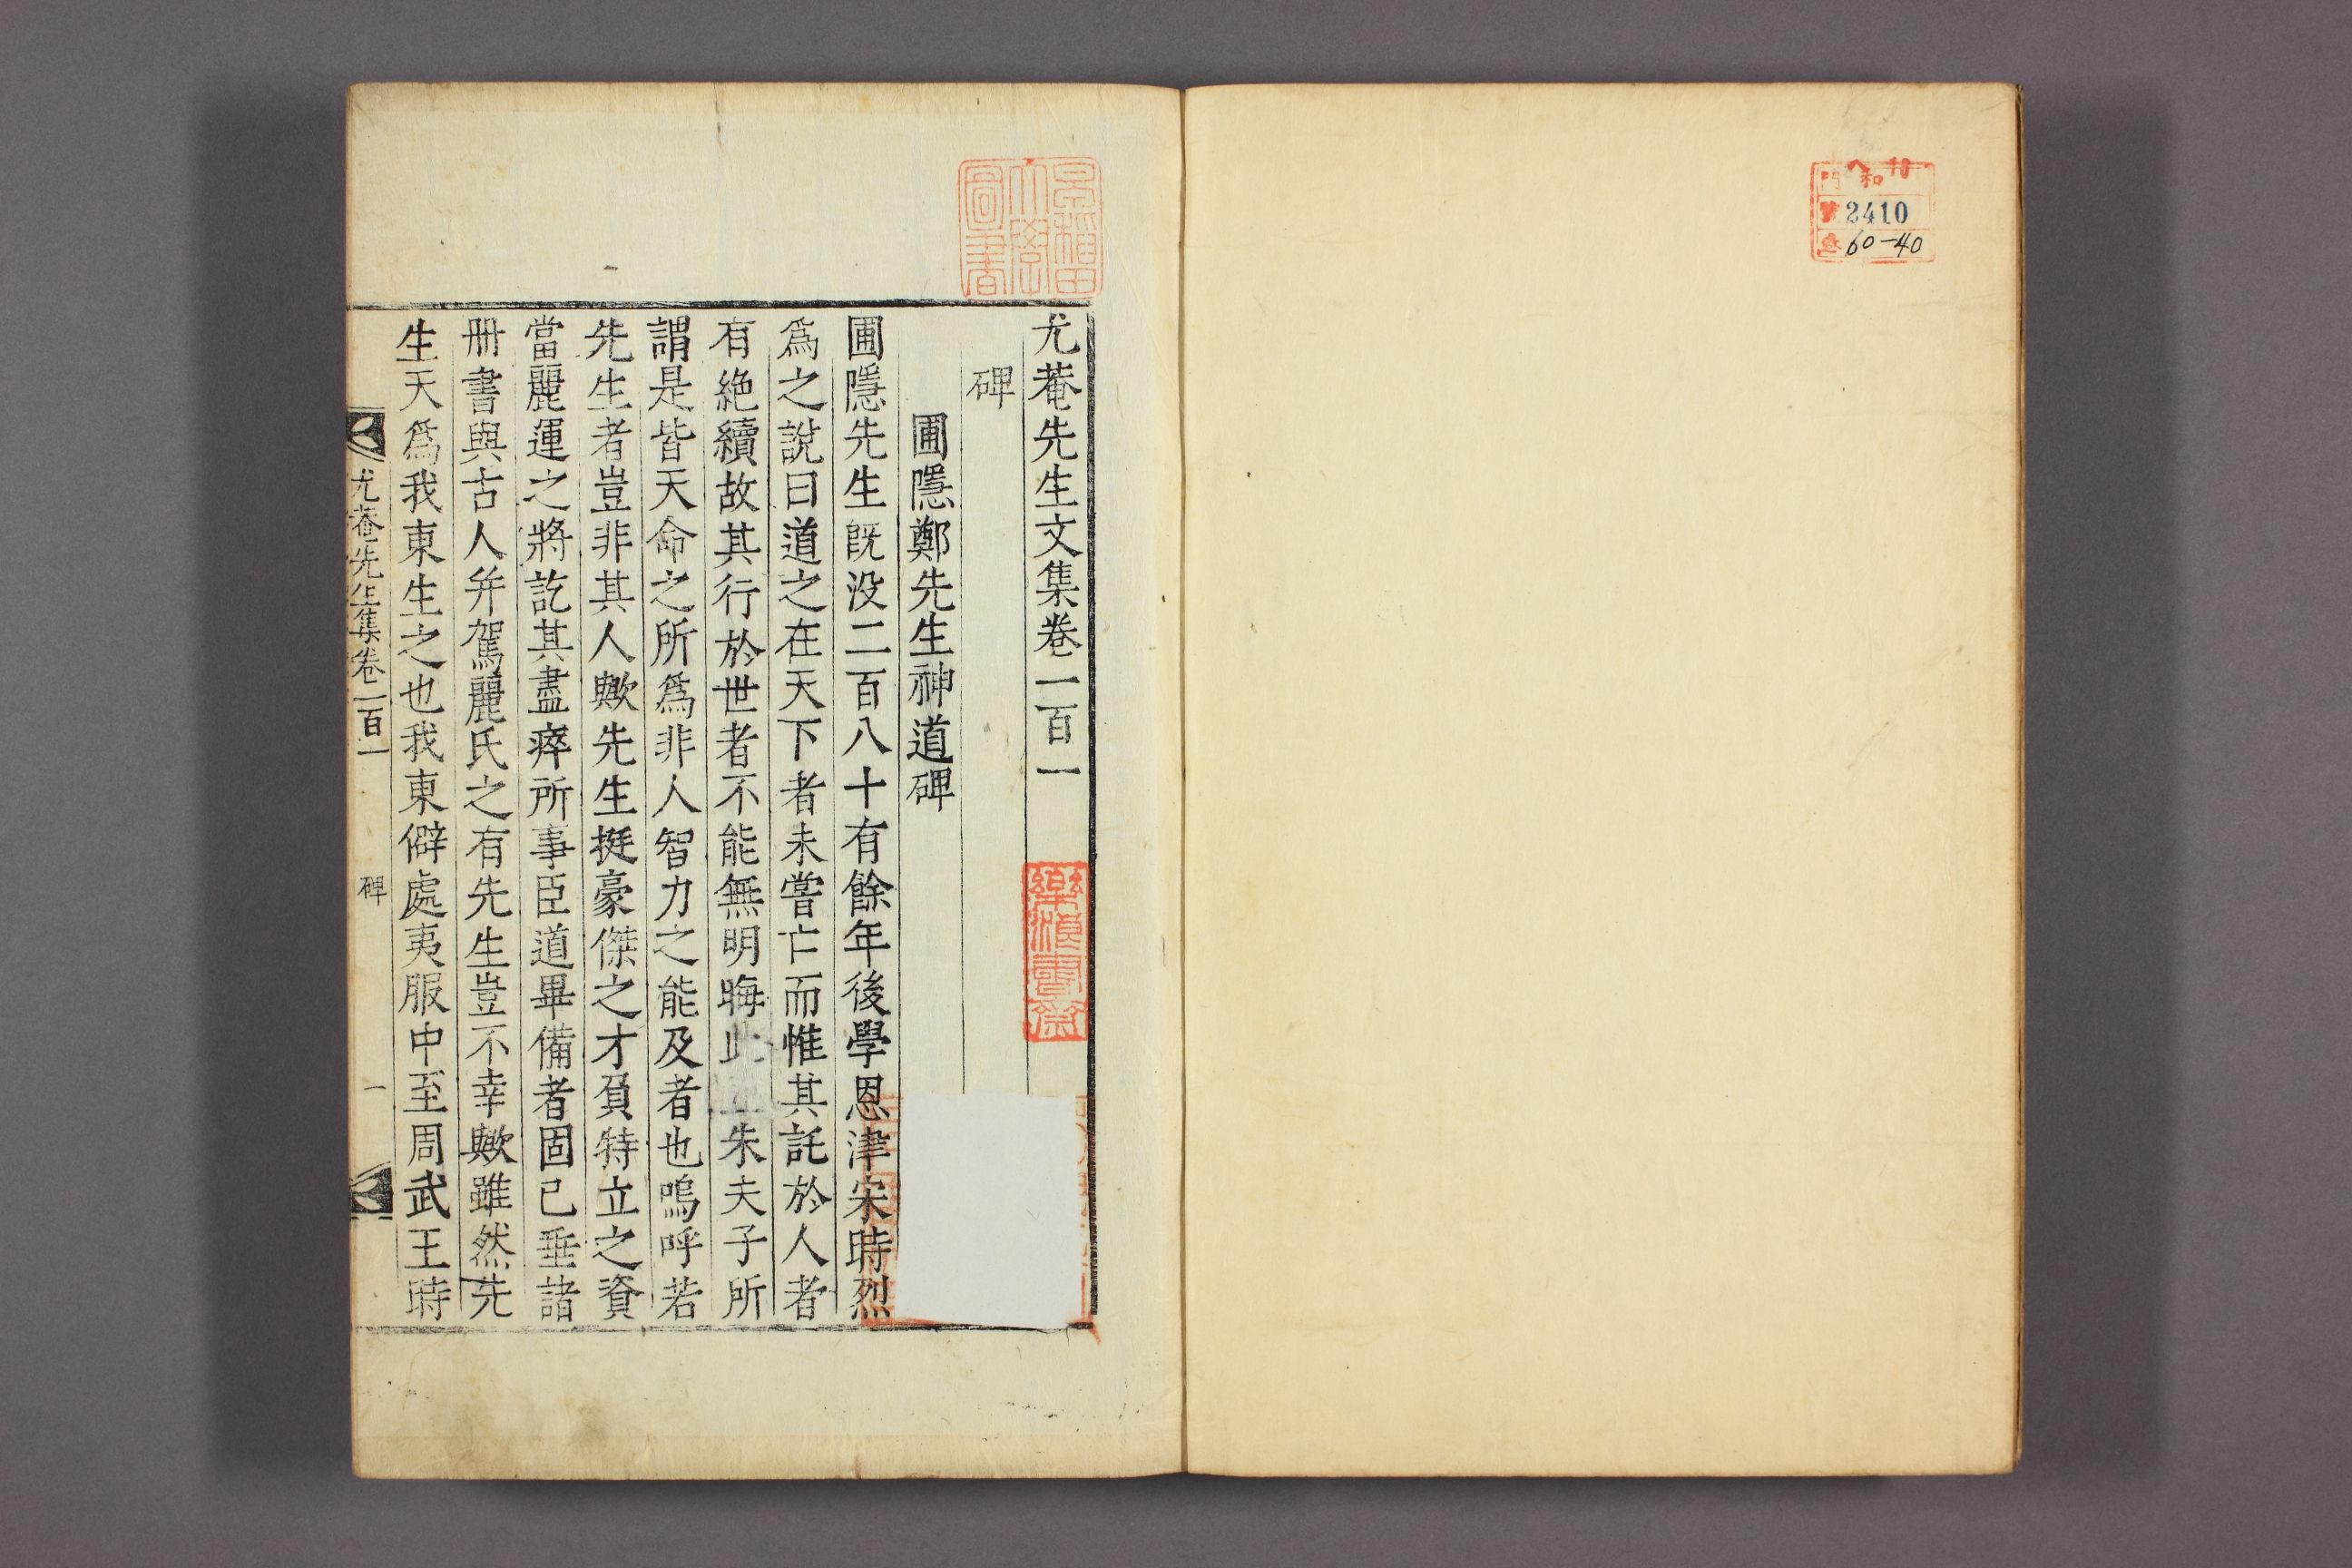 和
門
號 2410
卷 60-40
早稲田大學圖書
尤菴先生文集卷一百一
樂浪書齋
碑
圃隱鄭先生神道碑
圃隱先生旣没二百八十有餘年後學恩津宋時烈
爲之說曰道之在天下者未嘗亡而惟其託於人者
有絶續故其行於世者不能無明晦此朱夫子所
謂是皆天命之所爲非人智力之能及者也嗚呼若
先生者豈非其人歟先生挺豪傑之才負特立之資
當麗運之將訖其盡瘁所事臣道畢備者固已垂諸
冊書與古人并駕麗氏之有先生豈不幸歟雖然先
生天爲我東生之也我東僻處夷服中至周武王時
尤菴先生集卷一百一 碑 一